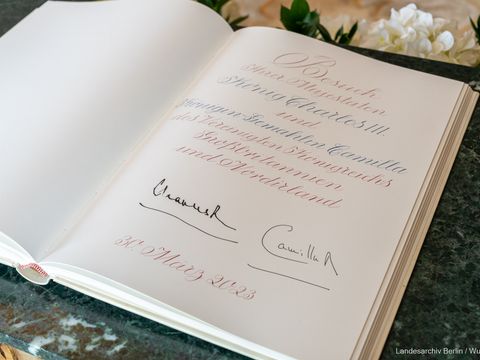 Besuch
Ihrer Majestäten
König Charles III.
und
Königin Gemahlin Camilla
des Vereinigten Königreichs
Großbritannien
und Nordirland
Charles R
Camilla R
30. März 2023
Landesarchiv Berlin / Wu